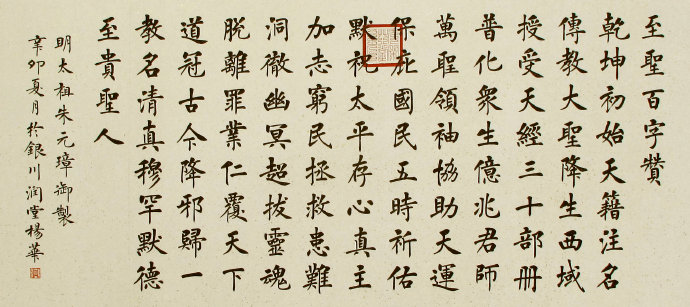 至聖百字讚
乾坤初始天籍注名
傳教大聖降生西域
授受天經三十部冊
普化眾生億兆君師
萬聖領袖協助天運
保庇國民五時祈佑
默祝太平存心真主
加志窮民拯救患難
洞徹幽冥超拔靈魂
脫離罪業仁覆天下
道冠古今降邪歸一
教名清真穆罕默德
至貴聖人
明太祖朱元璋御製
辛卯夏月於銀川潤堂楊華